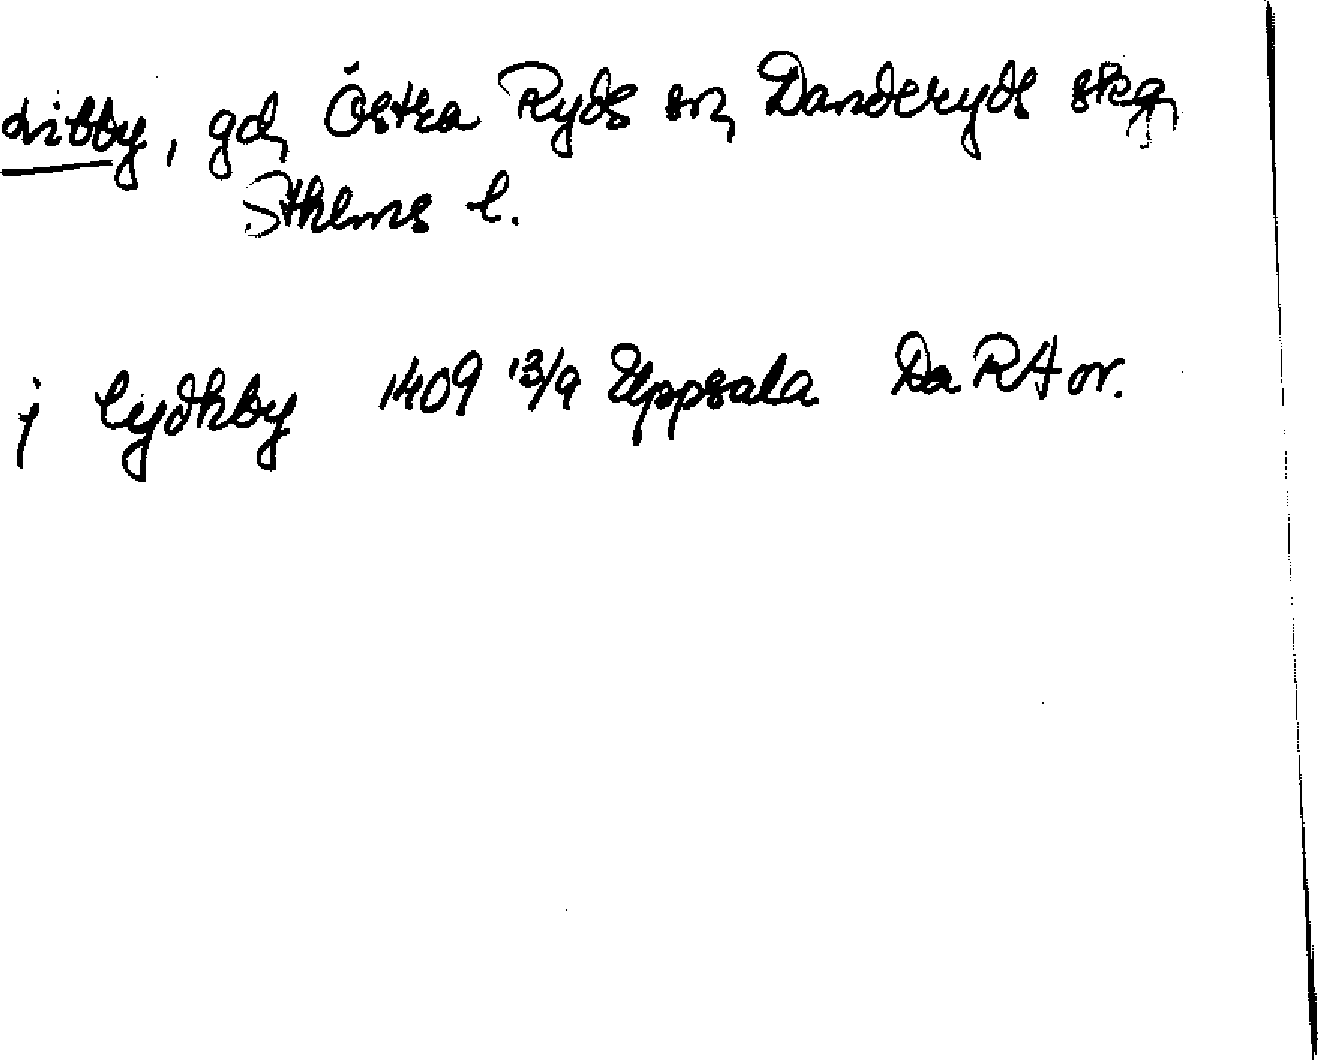 Libby, gd, Östra Ryds sn, Danderyds skg,
Sthlms l.
j lydhby 1409 13/9 Uppsala Da RA or.